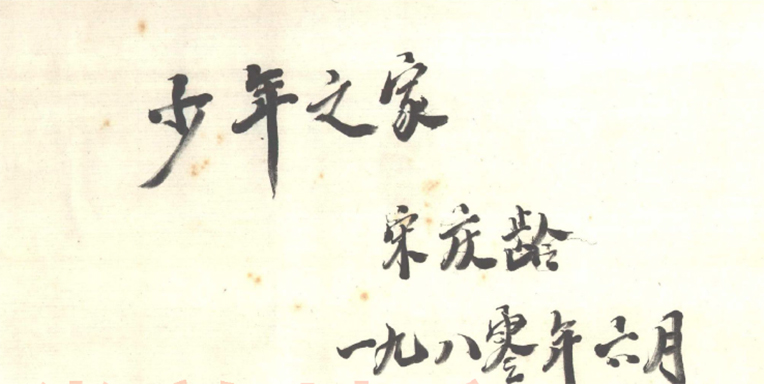 少年之家
宋庆龄
一九八零年六月